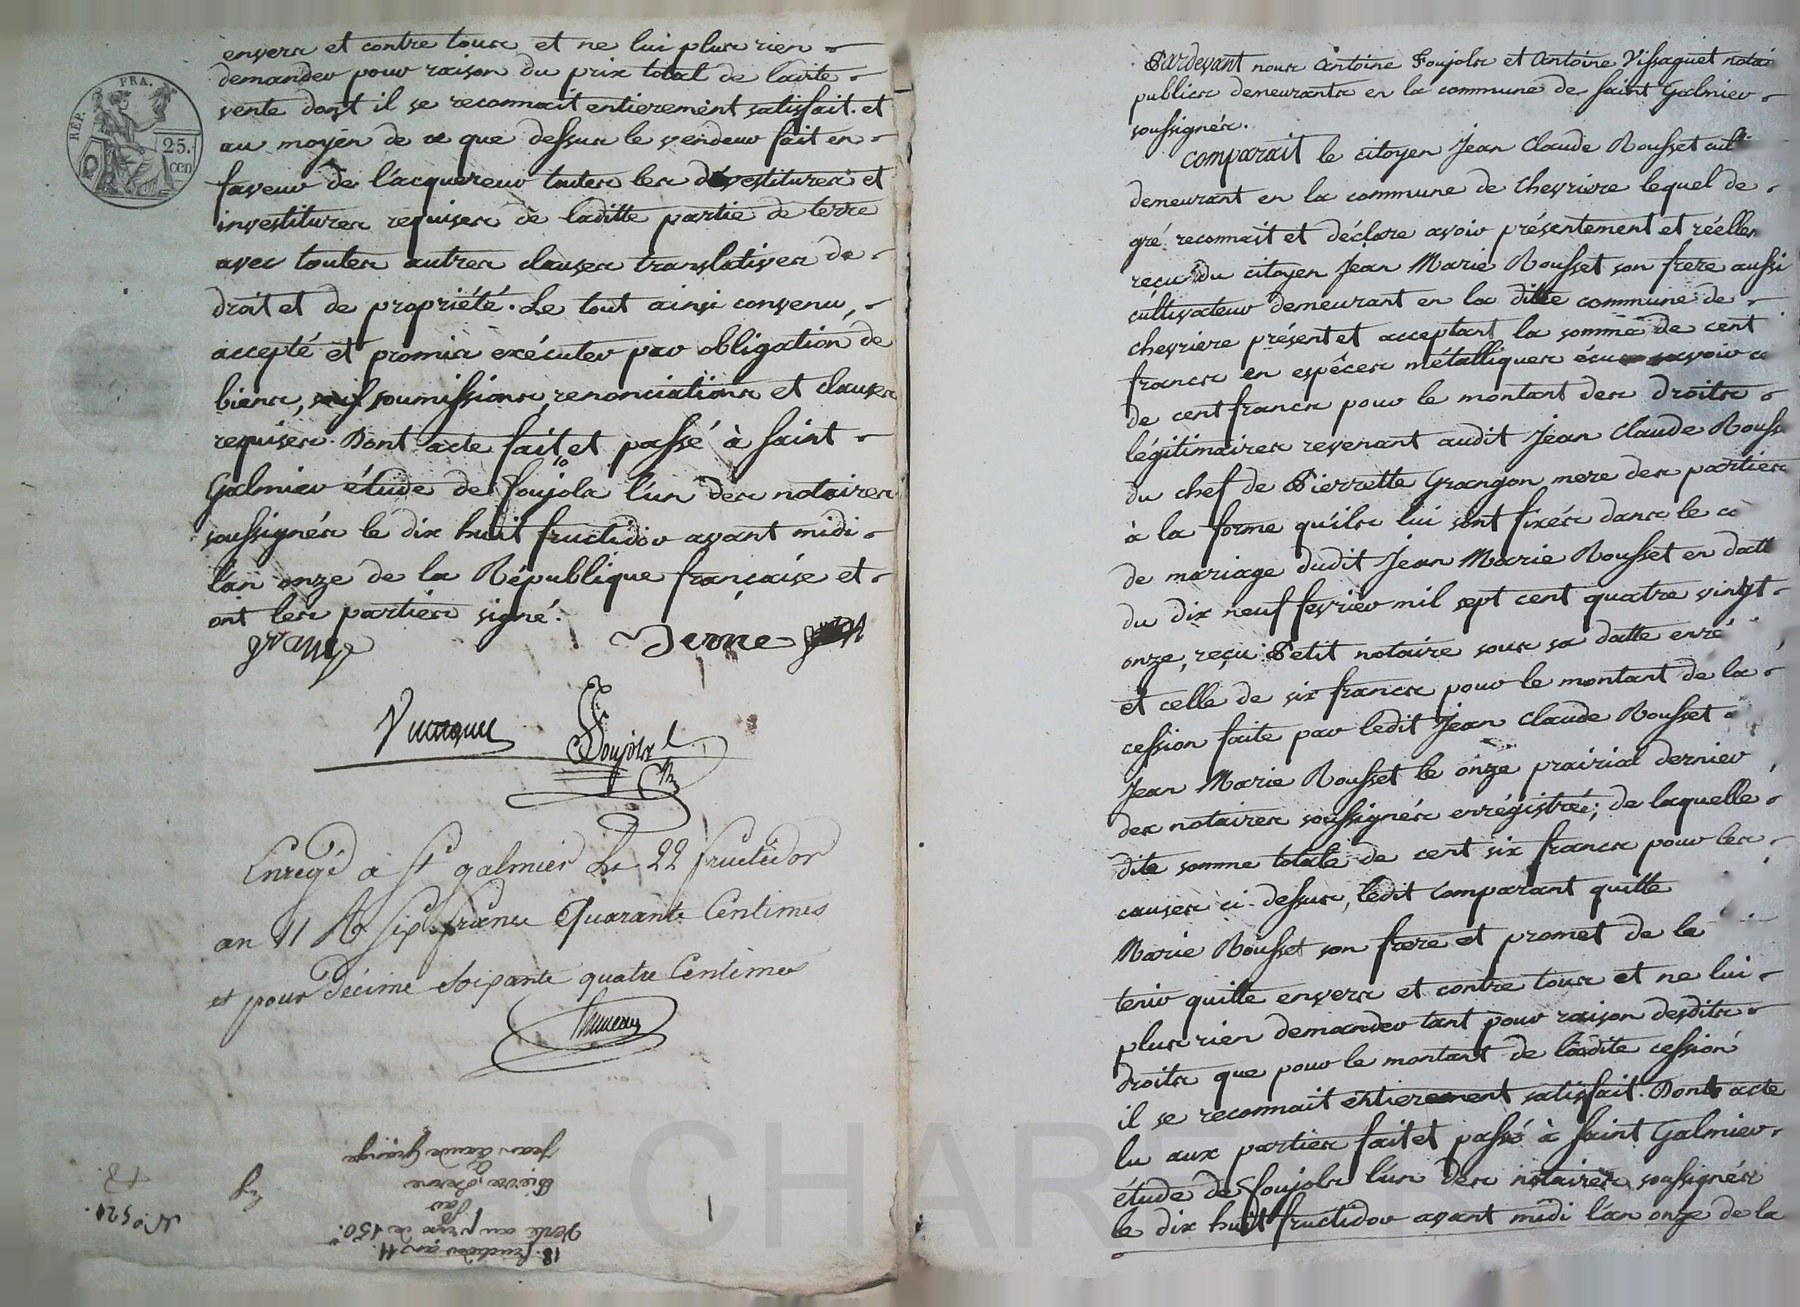 envers et contre tous et ne lui plus rien
demander pour raison du prix total de ladite
vente dont il se reconnait entierement satisfait. et
au moyen de ce que dessus le vendeur fait en
faveur de l'acquereur toutes les dévestitures et
investitures requises de laditte partie de terre
avec toutes autres clauses translatives de
droit et de propriété. Le tout ainsi convenu,
accepté et promis exécuter par obligation de
biens, soumissions, renonciations et clauses
requises. Dont acte fait et passé à Saint
Galmier étude de Foujols l'un des notaires
soussignés le dix huit fructidor avant midi
l'an onze de la République française et
ont les parties signé.
grange Verne
Vissaguet Foujols
Enregé a St galmier Le 22 fructidor
an 11 Rt Six francs Quarante Centimes
et pour Décime Soixante quatre Centimes
18. fructidor an 11.
Vente au prix de 150.
par
Pierre Verne
a
Jean Claude Grange
N.o 521.
RÉP. FRA.
25.
cen
Pardevant nous Antoine Foujols et Antoine Vissaguet notai
publics demeurants en la commune de Saint Galmier
soussignés.
Comparait le citoyen Jean Claude Rousset cult
demeurant en la commune de Chevriere lequel de
gré reconnait et déclare avoir présentement et réellem
reçu du citoyen Jean Marie Rousset son frere aussi
cultivateur demeurant en la ditte commune de
chevriere présent et acceptant la somme de cent
francs en espêces métalliques écus savoir ce
de cent francs pour le montant des droits
légitimaires revenant audit Jean Claude Rousse
du chef de Pierrette Grangon mere des parties
à la forme qu'ils lui sont fixés dans le co
de mariage dudit Jean Marie Rousset en datte
du dix neuf fevrier mil sept cent quatre vingt
onze, reçu Petit notaire sous sa datte enré
et celle de six francs pour le montant de la
cession faite par ledit Jean Claude Rousset a
Jean Marie Rousset le onze prairial dernier
des notaires soussignés enrégistrée; de laquelle
dite somme totale de cent six francs pour les
causes ci-dessus, ledit Comparant quitte
Marie Rousset son frere et promet de le
tenir quitte envers et contre tous et ne lui
plus rien demander tant pour raison desdits
droits que pour le montant de ladite cession
il se reconnait entierement satisfait. Dont acte
lu aux parties fait et passé à Saint Galmier
étude de Foujols l'un des notaires soussignés
le dix huit fructidor avant midi l'an onze de la